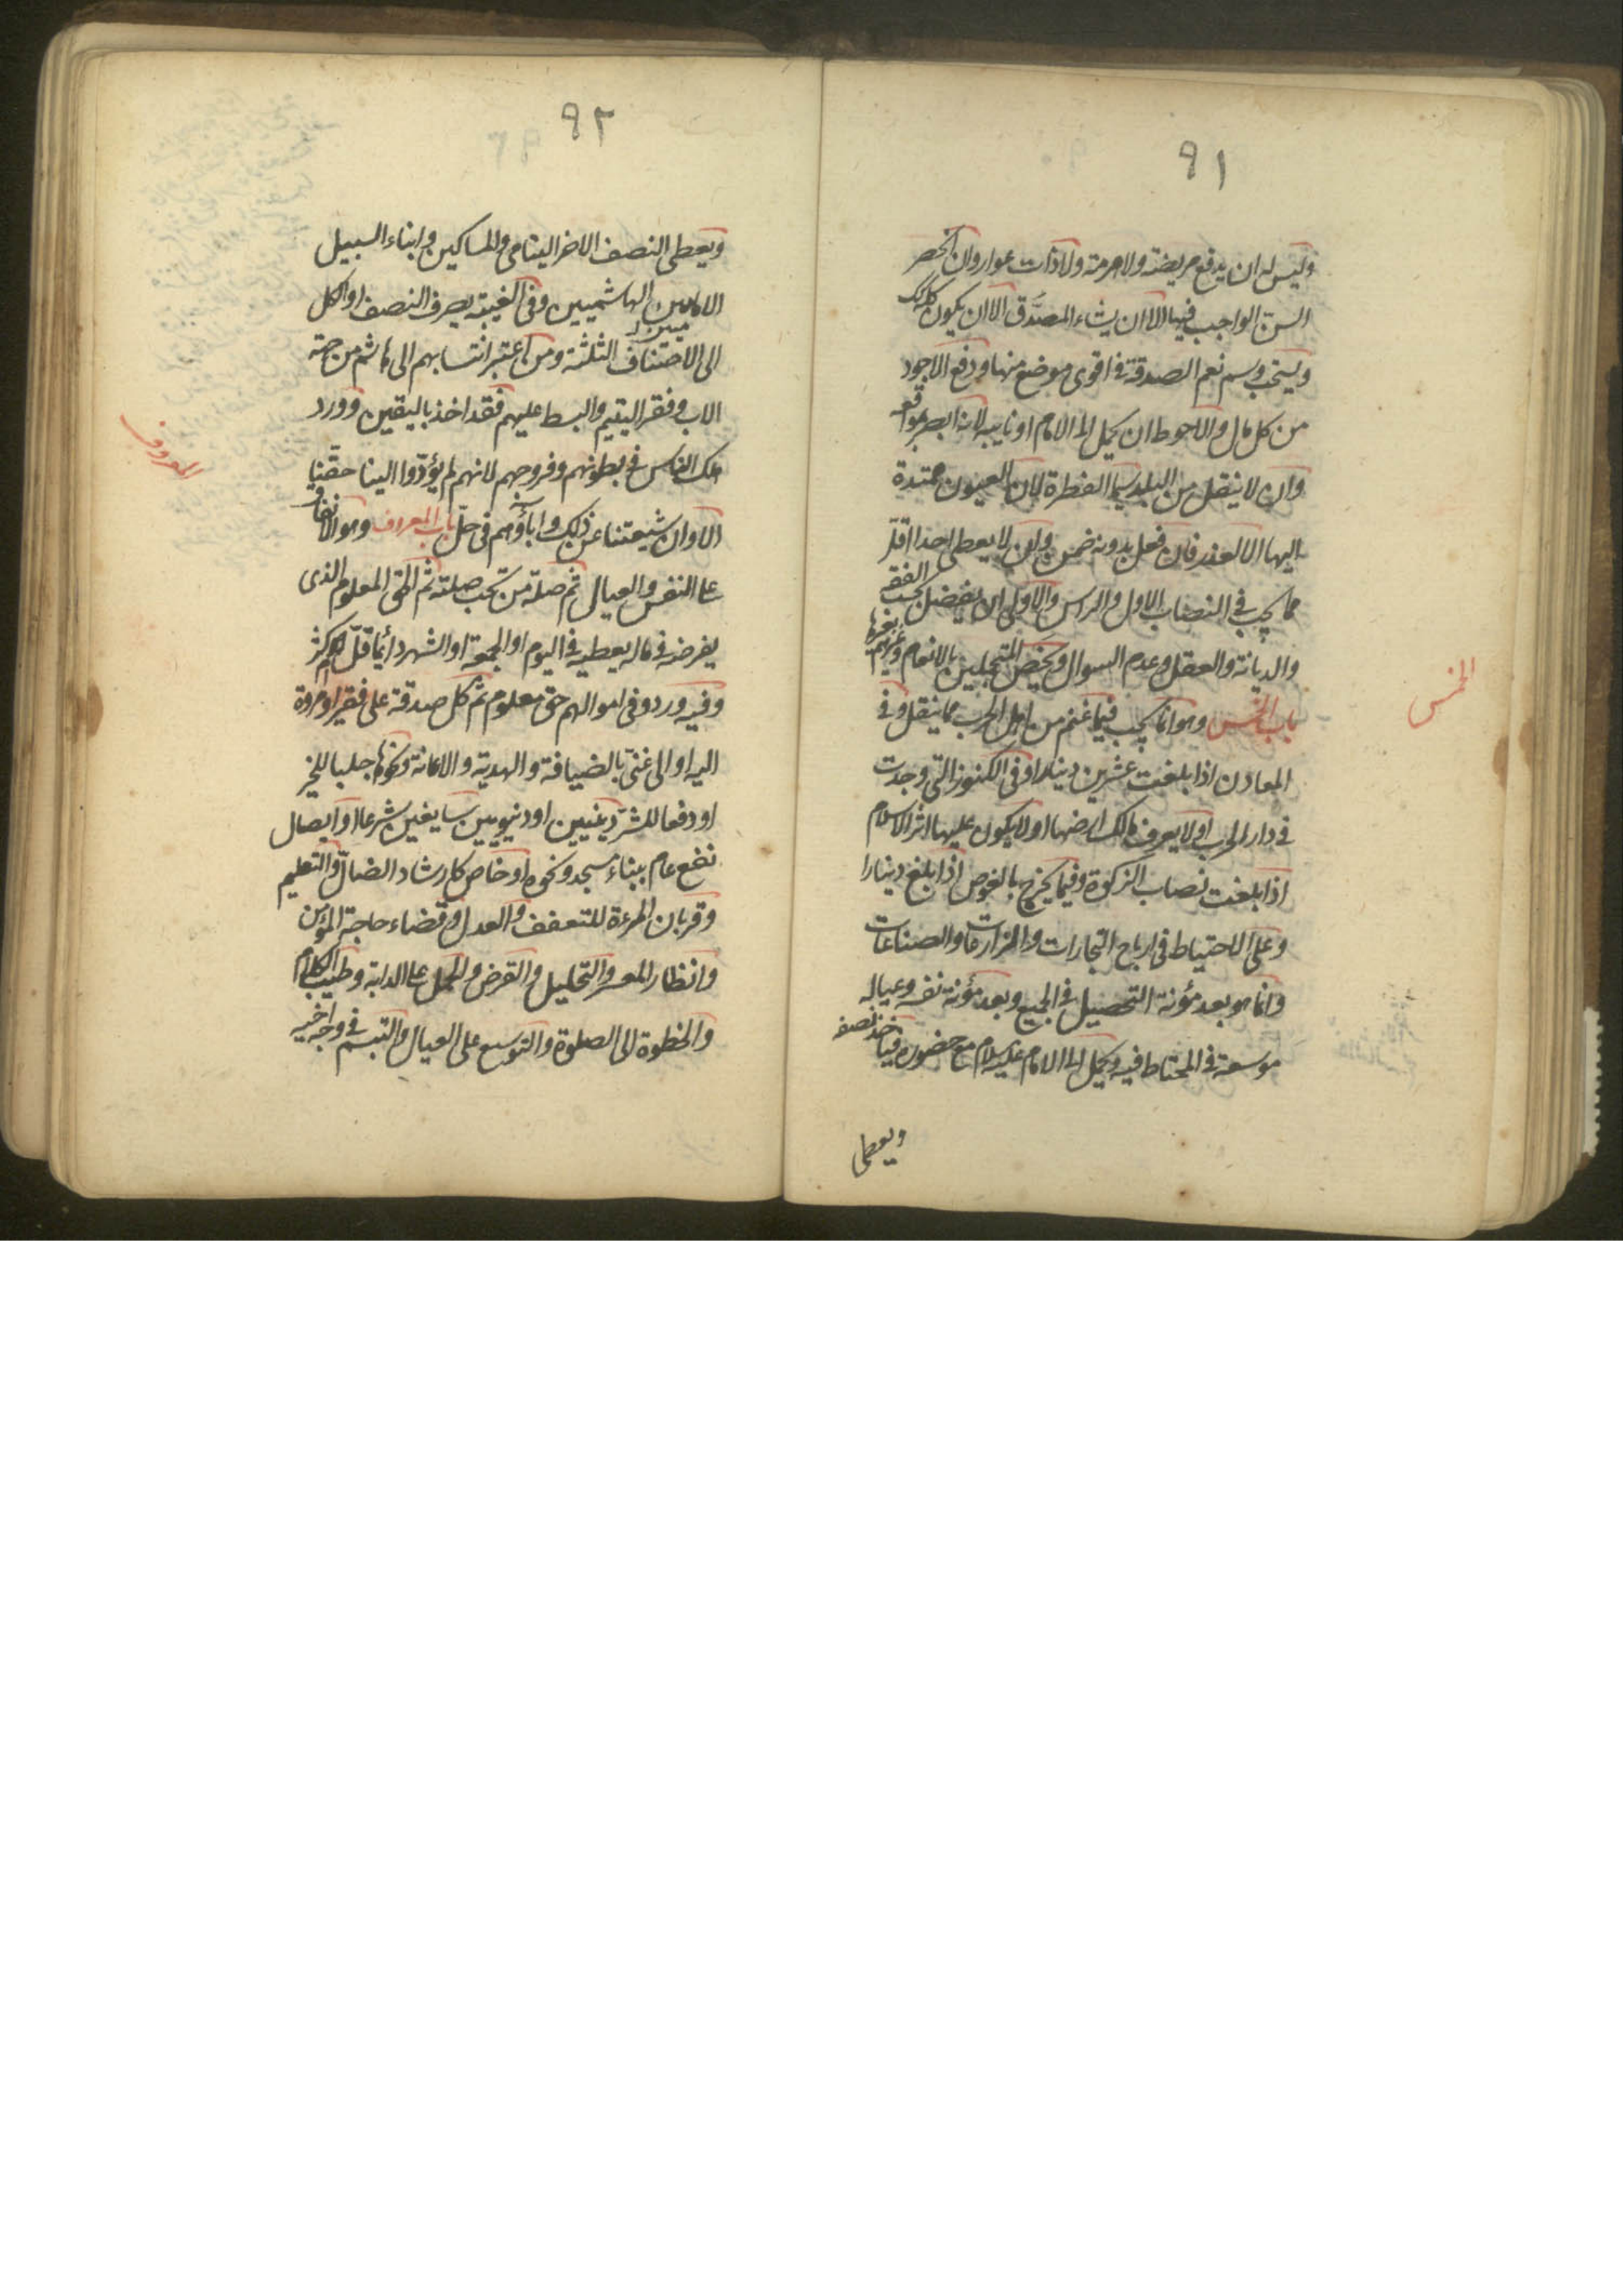 ٩١
وليس له ان يدفع مريضة ولا هرمة ولا ذات عوار وان انحصر
السن الواجب فيها الا ان يشاء المصدّق الا ان يكون كله كذلك
ويستحب وسم نعم الصدقة في اقوى موضع منها ودفع الاجود
من كل مال والاحوط ان يحمل الى الامام او نايبه لانه ابصر بمواقعه
وان لا ينقل من البلد سيما الفطرة لان العيون ممتدة
اليها الا لعذر فان فعل بدونه ضمن وان لا يعطى احدا اقل
مما يجب في النصاب الاول والراس والاولى ان يفضل بحسب الفقه
والديانة والعقل وعدم السوال ويخص المتجملين بالانعام وغيرهم بغيرها
الخمس
باب الخمس وهو انما يجب فيما غنم من اهل الحرب مما ينقل وفي
المعادن اذا بلغت عشرين دينارا وفي الكنوز التي وجدت
في دار الحرب او لا يعرف مالك ارضها او لا يكون عليها اثر الاسلام
اذا بلغت نصاب الزكوة وفيما يخرج بالغوص اذا بلغ دينارا
وعلى الاحتياط في ارباح التجارات والزراعات والصناعات
وانما هو بعد مؤنة التحصيل في الجميع وبعد مؤنة نفسه وعياله
موسعة في المحتاط فيه ويحمل الى الامام عليه السلام مع حضوره فياخذ نصفه
ويعطى
٩٢
ويعطى النصف الاخر اليتامى والمساكين وابناء السبيل
الاماميين الهاشميين وفي الغيبة يصرف النصف او الكل
الى الاصناف الثلثة ومن اعتبر انتسابهم الى هاشم من جهة
الاب وفقر اليتيم والبسط عليهم فقد اخذ باليقين وورد
هلك الناس في بطونهم وفروجهم لانهم لم يؤدّوا الينا حقّنا
المعروف
الا وان شيعتنا من ذلك وآباؤهم في حلّ باب المعروف وهو الانفاق
على النفس والعيال ثم صلة من تجب صلته ثم الحق المعلوم الذي
يفرضه في ماله يعطيه في اليوم او الجمعة او الشهر دائما قلّ او كثر
وفيه ورد وفي اموالهم حق معلوم ثم كل صدقة على فقير او مروة
اليه او الى غنى بالضيافة والهدية والاعانة ونحوها جلبا للخير
او دفعا للشر دينيين او دنيويين سايغين شرعا او ايصال
نفع عام ببناء مسجد ونحوه او خاص كارشاد الضالّ والتعليم
وقربان المرءة للتعفف والعدل وقضاء حاجة المؤمن
وانظار المعسر والتحليل والقرض والحمل على الدابة وطيب الكلام
والخطوة الى الصلوة والتوسيع على العيال والتبسم في وجه اخيه